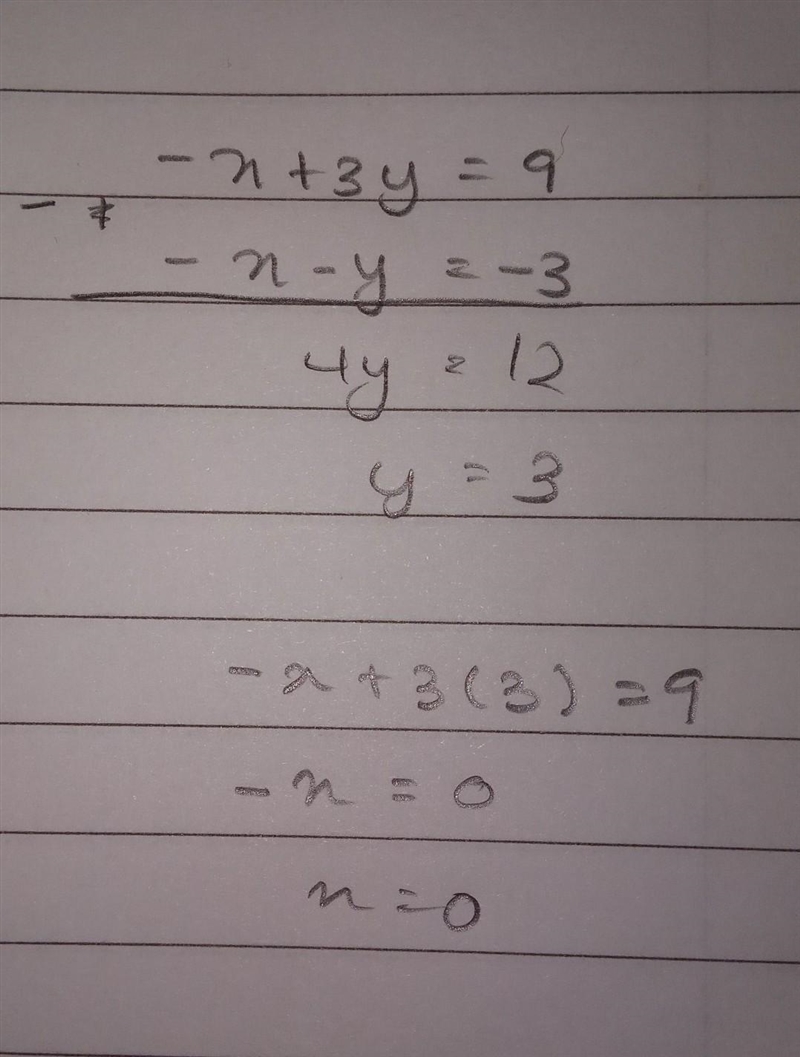 -x+3y = 9
-
-x-y = -3
4y = 12
y = 3
-x+3(3) = 9
-x = 0
x = 0